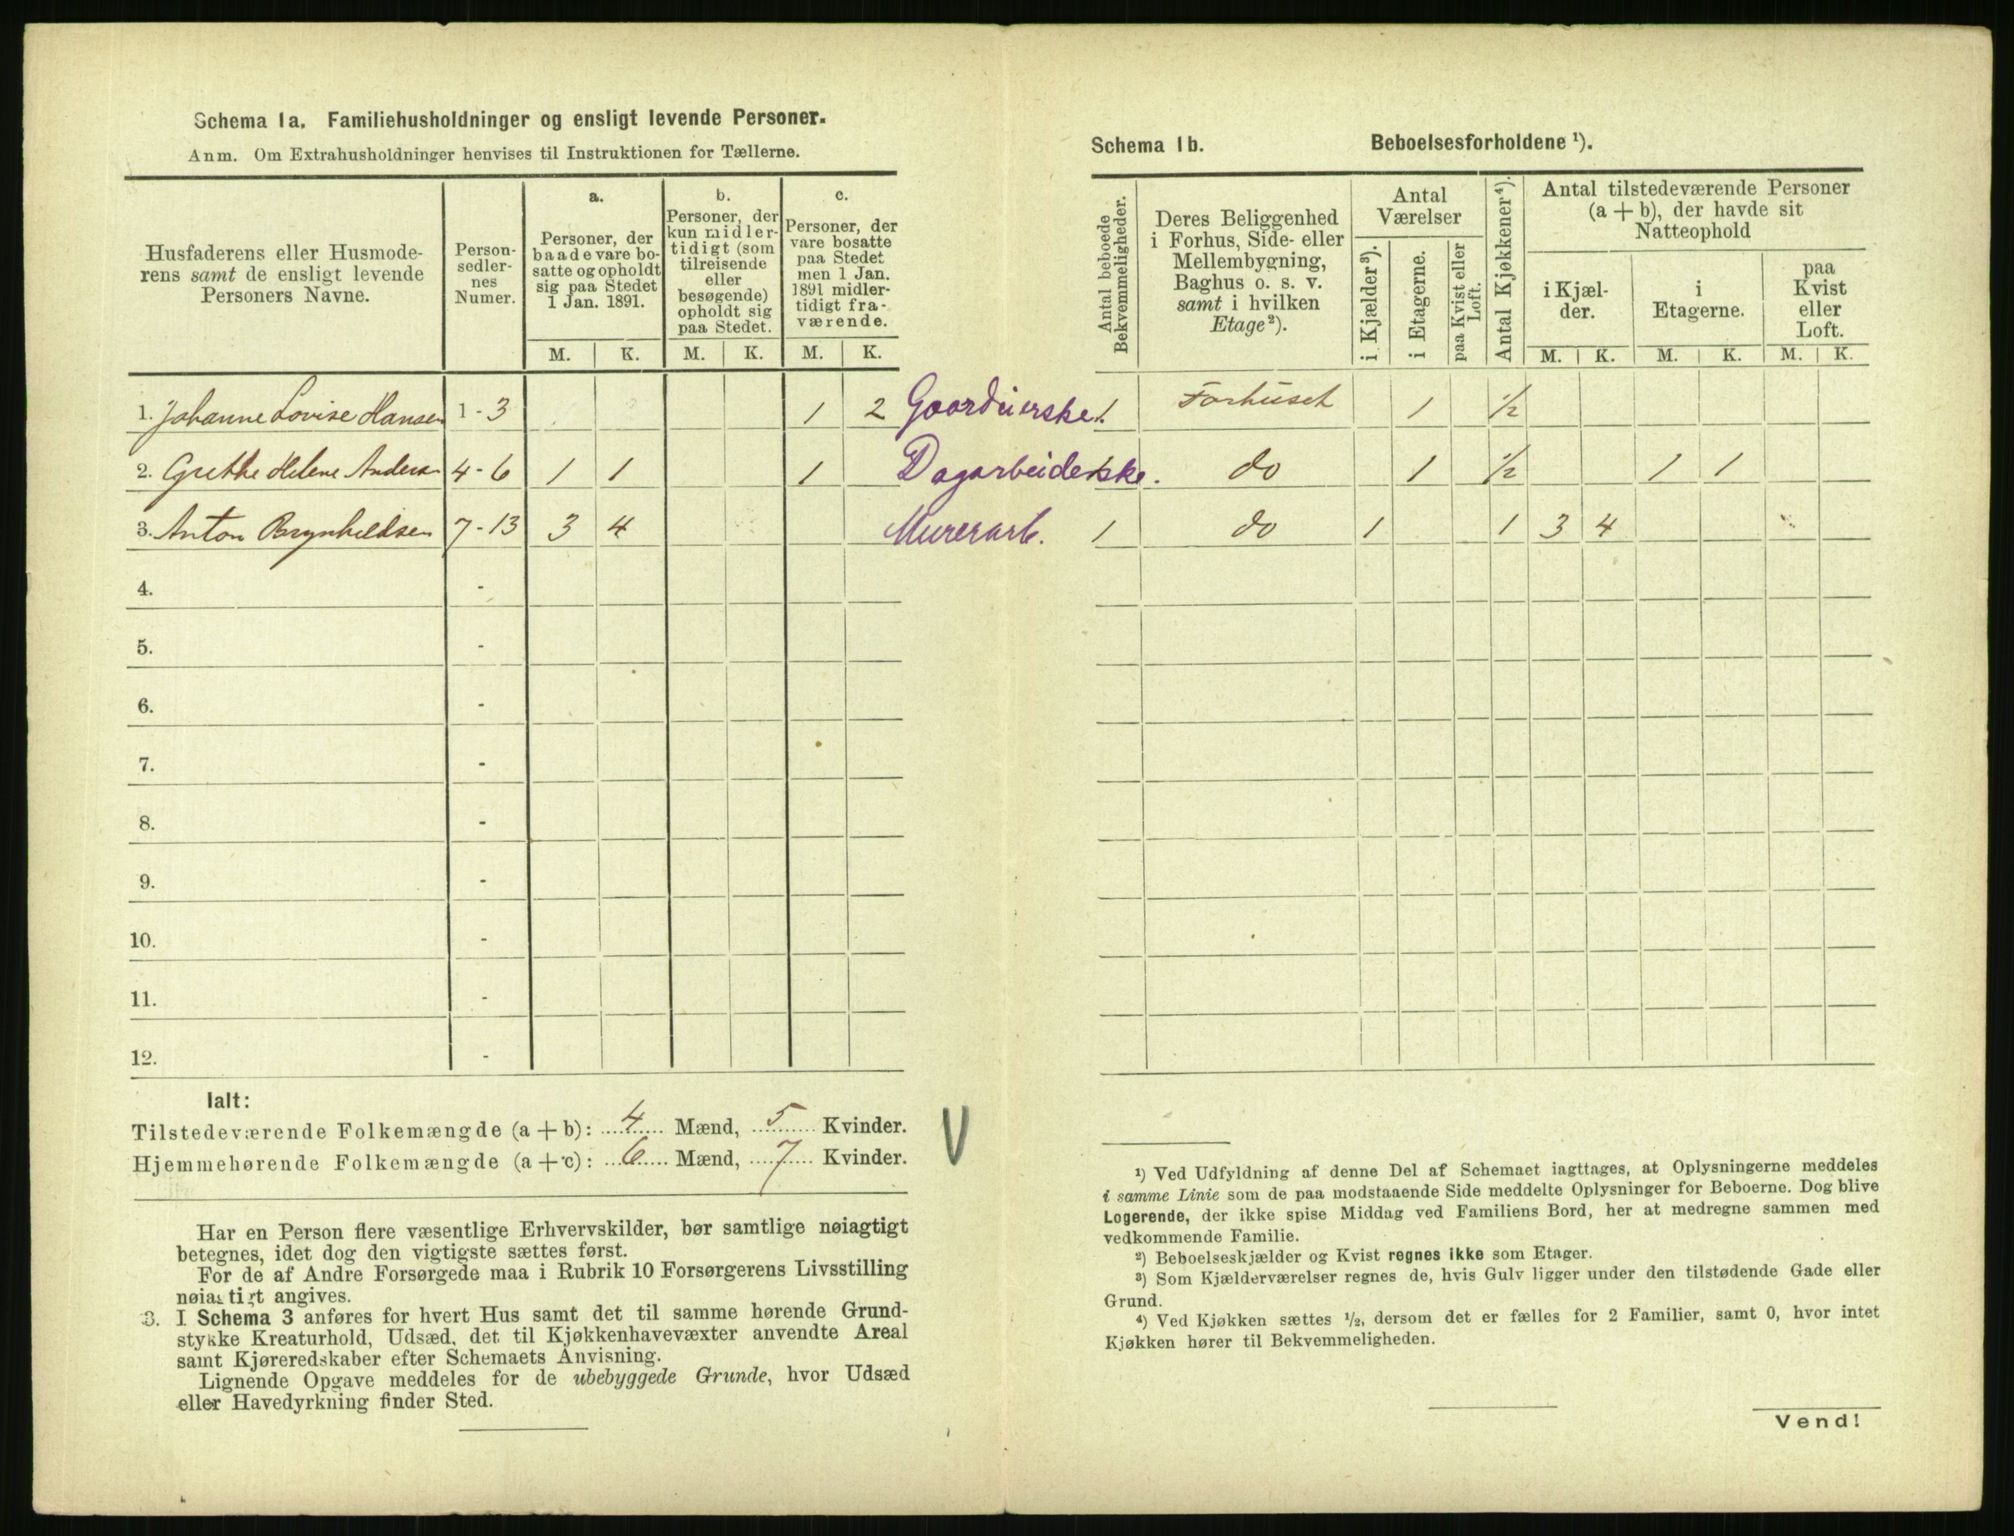 Schema 1a. Familiehusholdninger og ensligt levende Personer.
Anm. Om Extrahusholdninger henvises til Instruktionen for Tællerne.
Husfaderens eller Husmode-
rens samt de ensligt levende
Personers Navne.
Person-
sedler-
nes
Numer.
a.
Personer, der
baade vare bo-
satte og opholdt
sig paa Stedet
1 Jan. 1891.
b.
Personer, der
kun midler-
tidigt (som
tilreisende
eller
besøgende)
opholdt sig
paa Stedet.
c.
Personer, der
vare bosatte
paa Stedet
men 1 Jan.
1891 midler-
tidigt fra-
værende.
M. K. M. K. M. K.
1. Johanne Lovise Hansen 1 - 3 1 2 Gaardeierske.
2. Grethe Helene Anders 4 - 6 1 1 1 Dagarbeiderske.
3. Anton Brynhildsen 7 - 13 3 4 Murerarb.
4. -
5. -
6. -
7. -
8. -
9. -
10. -
11. -
12. -
Ialt:
Tilstedeværende Folkemængde (a + b): 4 Mænd, 5 Kvinder.
Hjemmehørende Folkemængde (a + c): 6 Mænd, 7 Kvinder.
Har en Person flere væsentlige Erhvervskilder, bør samtlige nøiagtigt
betegnes, idet dog den vigtigste sættes først.
For de af Andre Forsørgede maa i Rubrik 10 Forsørgerens Livsstilling
nøiagtigt angives.
3. I Schema 3 anføres for hvert Hus samt det til samme hørende Grund-
stykke Kreaturhold, Udsæd, det til Kjøkkenhavevæxter anvendte Areal
samt Kjøreredskaber efter Schemaets Anvisning.
Lignende Opgave meddeles for de ubebyggede Grunde, hvor Udsæd
eller Havedyrkning finder Sted.
Schema 1b. Beboelsesforholdene ¹).
Antal beboede
Bekvemmeligheder.
Deres Beliggenhed
i Forhus, Side- eller
Mellembygning,
Baghus o. s. v.
samt i hvilken
Etage ²).
Antal
Værelser
i Kjælder ³).
i Etagerne.
paa Kvist eller
Loft.
Antal Kjøkkener ⁴).
Antal tilstedeværende Personer
(a + b), der havde sit
Natteophold
i Kjæl-
der.
i
Etagerne.
paa
Kvist
eller
Loft.
M. K. M. K. M. K.
1 Forhuset 1 ½
1 do 1 ½ 1 1
1 do 1 1 3 4
¹) Ved Udfyldning af denne Del af Schemaet iagttages, at Oplysningerne meddeles
i samme Linie som de paa modstaaende Side meddelte Oplysninger for Beboerne. Dog blive
Logerende, der ikke spise Middag ved Familiens Bord, her at medregne sammen med
vedkommende Familie.
²) Beboelseskjælder og Kvist regnes ikke som Etager.
³) Som Kjælderværelser regnes de, hvis Gulv ligger under den tilstødende Gade eller
Grund.
⁴) Ved Kjøkken sættes ½, dersom det er fælles for 2 Familier, samt 0, hvor intet
Kjøkken hører til Bekvemmeligheden.
Vend!